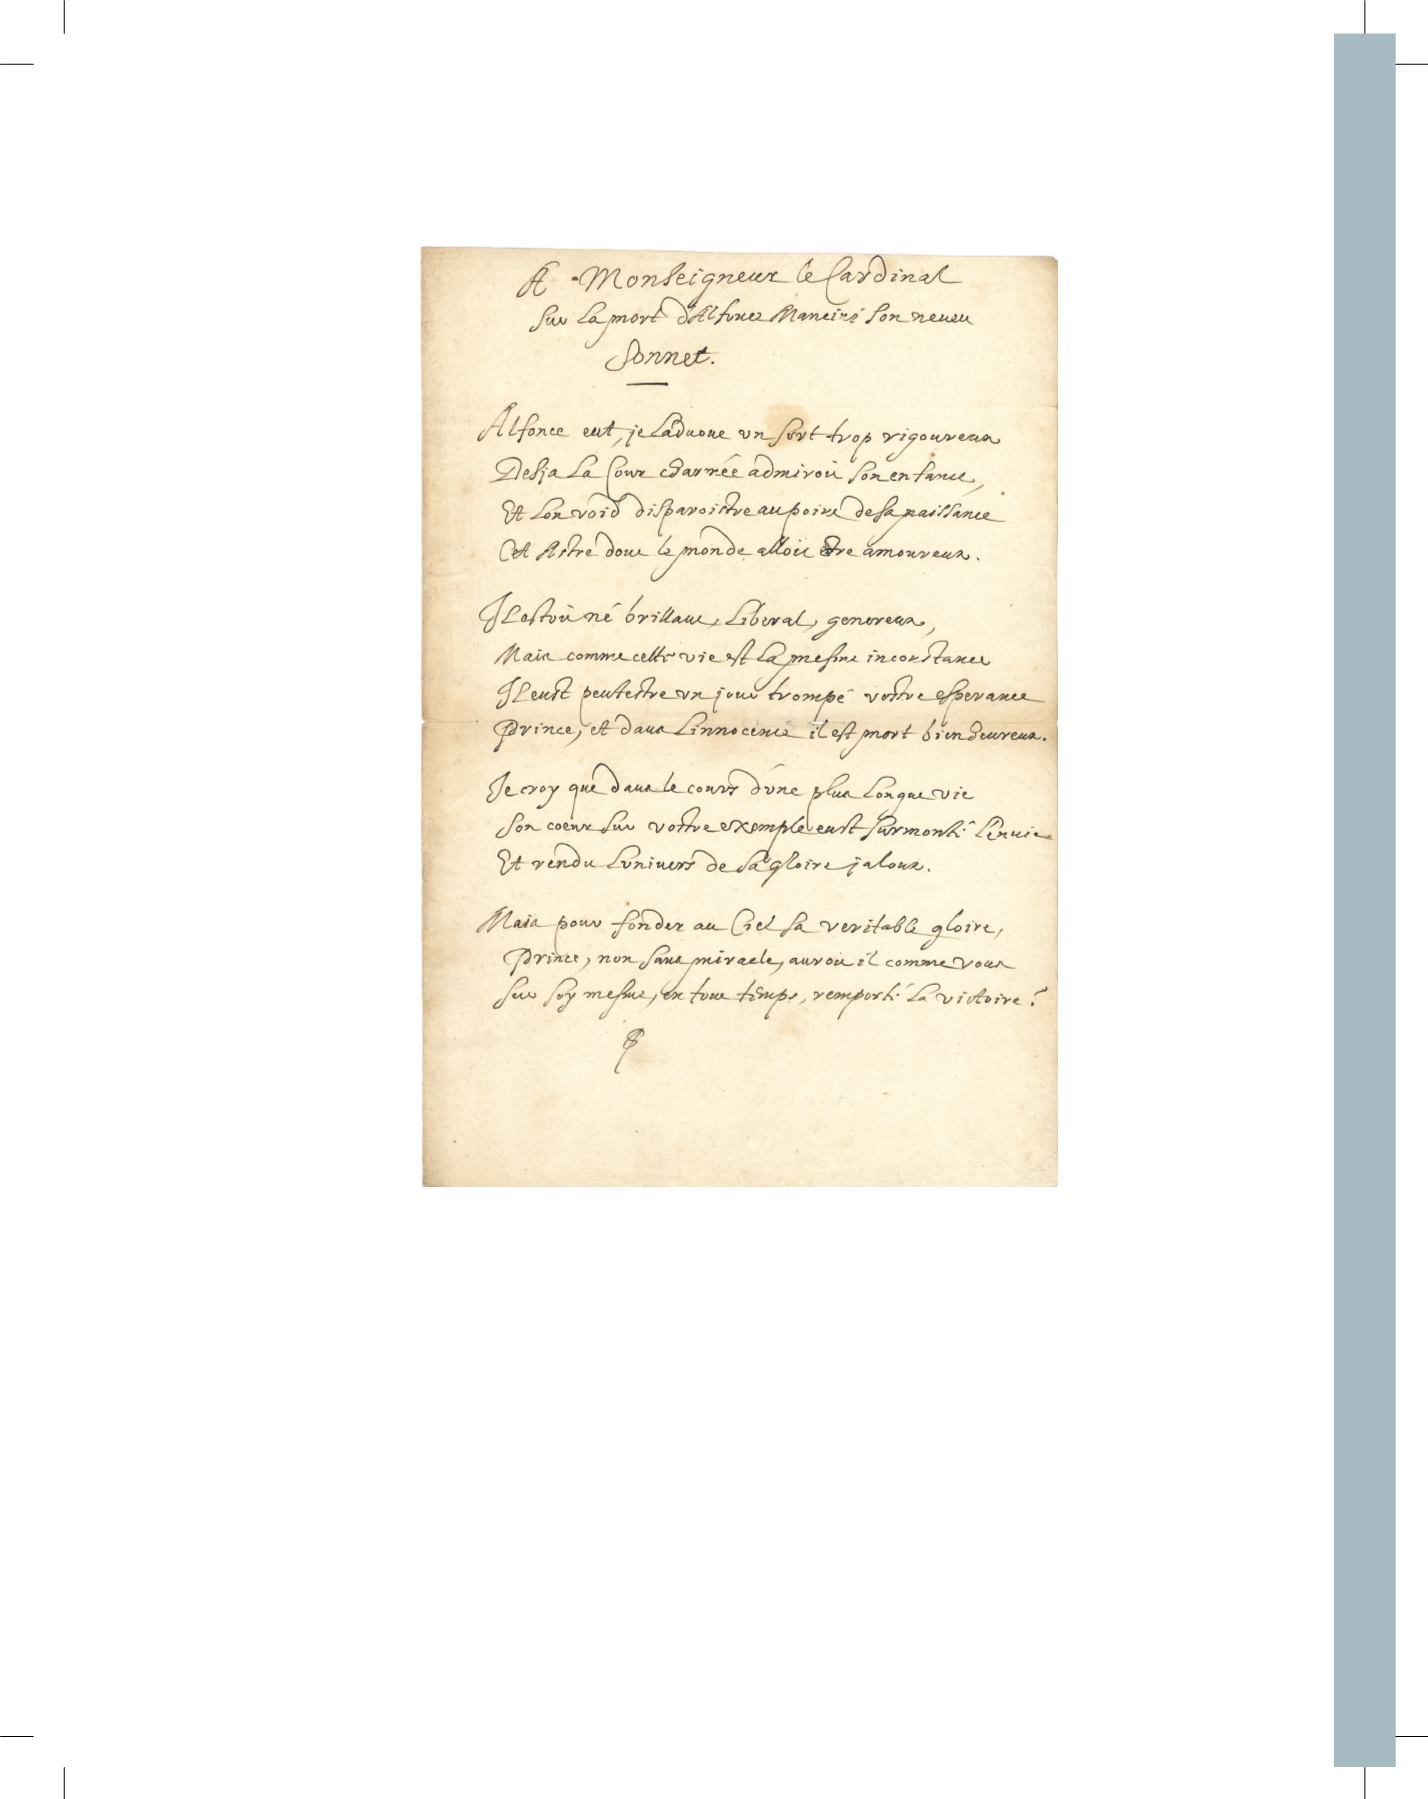 A Monseigneur le Cardinal
Sur La mort d'Alfonce Mancini son neueu
Sonnet.
Alfonce eut, je L'aduoue vn sort trop rigoureux
Desja La Cour charmée admiroit son enfance,
Et L'on void disparoistre au point de sa naissance
Cet Astre dont le monde alloit estre amoureux.
Il estoit né brillant, Liberal, genereux,
Mais comme cette vie est La mesme inconstance
Il eust peutestre vn jour trompé vostre esperance
Prince, et dans L'innocence il est mort bienheureux.
Je croy que dans le cours d'vne plus Longue vie
Son coeur sur vostre exemple eust surmonté L'enuie
Et rendu L'vniuers de sa gloire jaloux.
Mais pour fonder au Ciel sa veritable gloire,
Prince, non sans miracle, auroit il comme vous
Sur soy mesme, en tout temps, remporté La victoire ?